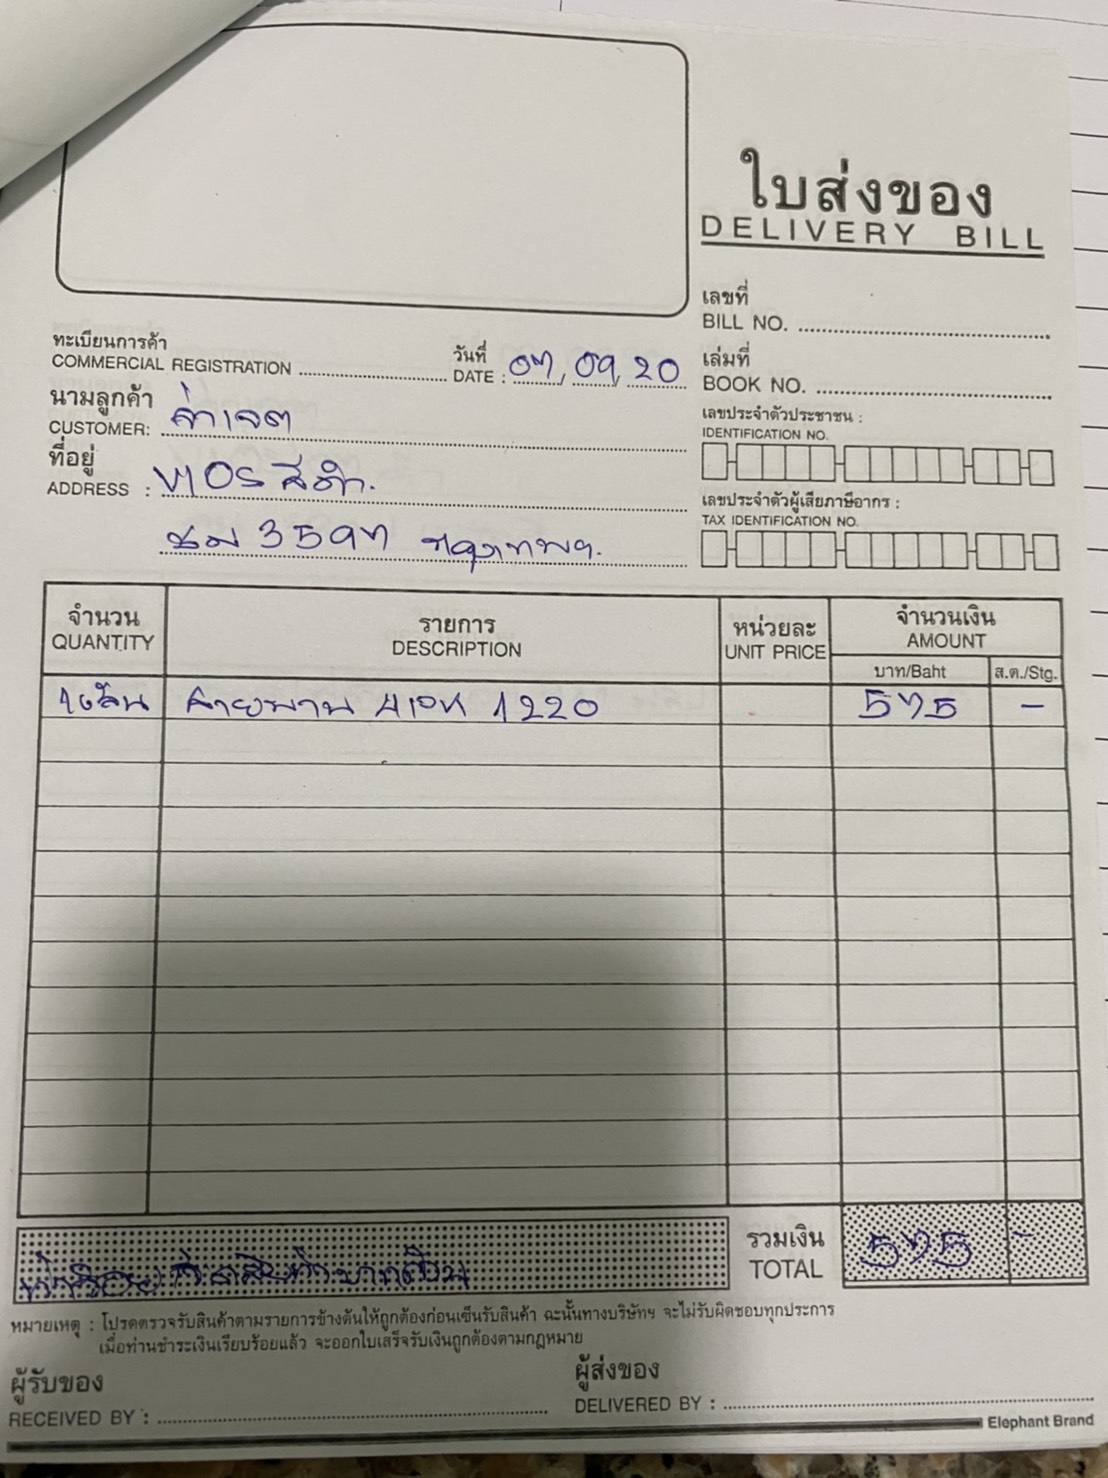 ใบส่งของ
DELIVERY BILL
เลขที่
BILL NO.
ทะเบียนการค้า
COMMERCIAL REGISTRATION
วันที่
DATE : 07, 09, 20
เล่มที่
BOOK NO.
นามลูกค้า
CUSTOMER: จ่าเจต
เลขประจำตัวประชาชน :
IDENTIFICATION NO.
ที่อยู่
ADDRESS : VIOS สีดำ.
เลขประจำตัวผู้เสียภาษีอากร :
TAX IDENTIFICATION NO.
ชม 3597 กรุงเทพฯ.
จำนวน
QUANTITY
รายการ
DESCRIPTION
หน่วยละ
UNIT PRICE
จำนวนเงิน
AMOUNT
บาท/Baht
ส.ต./Stg.
1 เส้น สายพาน 4PK 1220 575 -
ห้าร้อยเจ็ดสิบห้าบาทถ้วน
รวมเงิน
TOTAL 575 -
หมายเหตุ : โปรดตรวจรับสินค้าตามรายการข้างต้นให้ถูกต้องก่อนเซ็นรับสินค้า ฉะนั้นทางบริษัทฯ จะไม่รับผิดชอบทุกประการ
เมื่อท่านชำระเงินเรียบร้อยแล้ว จะออกใบเสร็จรับเงินถูกต้องตามกฎหมาย
ผู้รับของ
RECEIVED BY :
ผู้ส่งของ
DELIVERED BY :
Elephant Brand